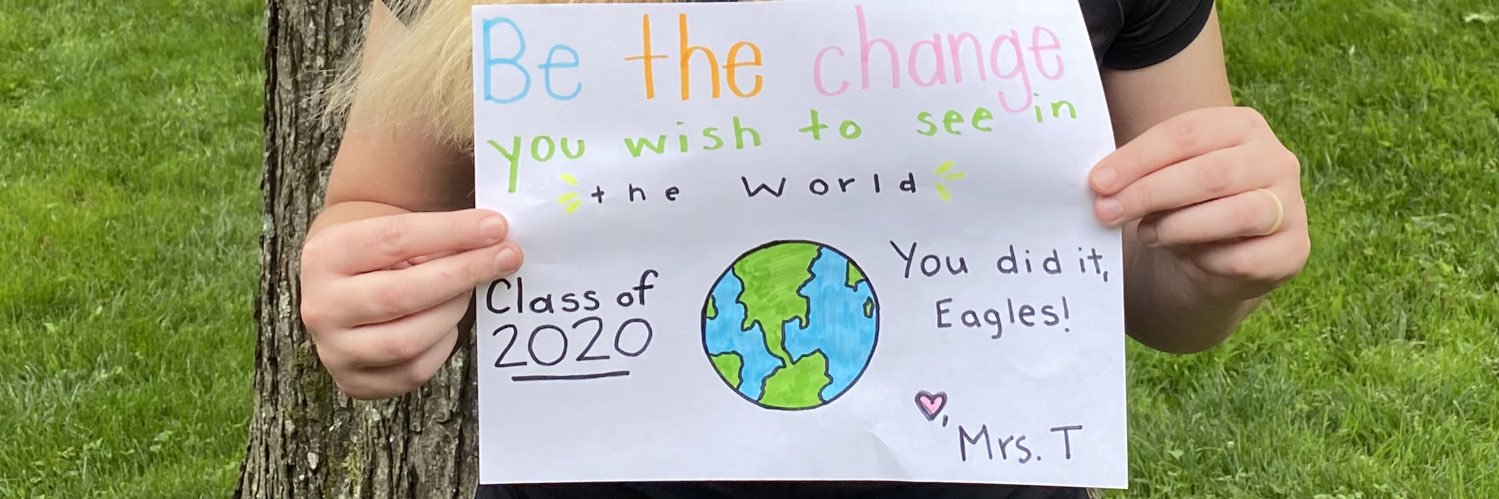 Be the change
you wish to see in
the World
Class of
2020
You did it,
Eagles!
♥,
Mrs. T